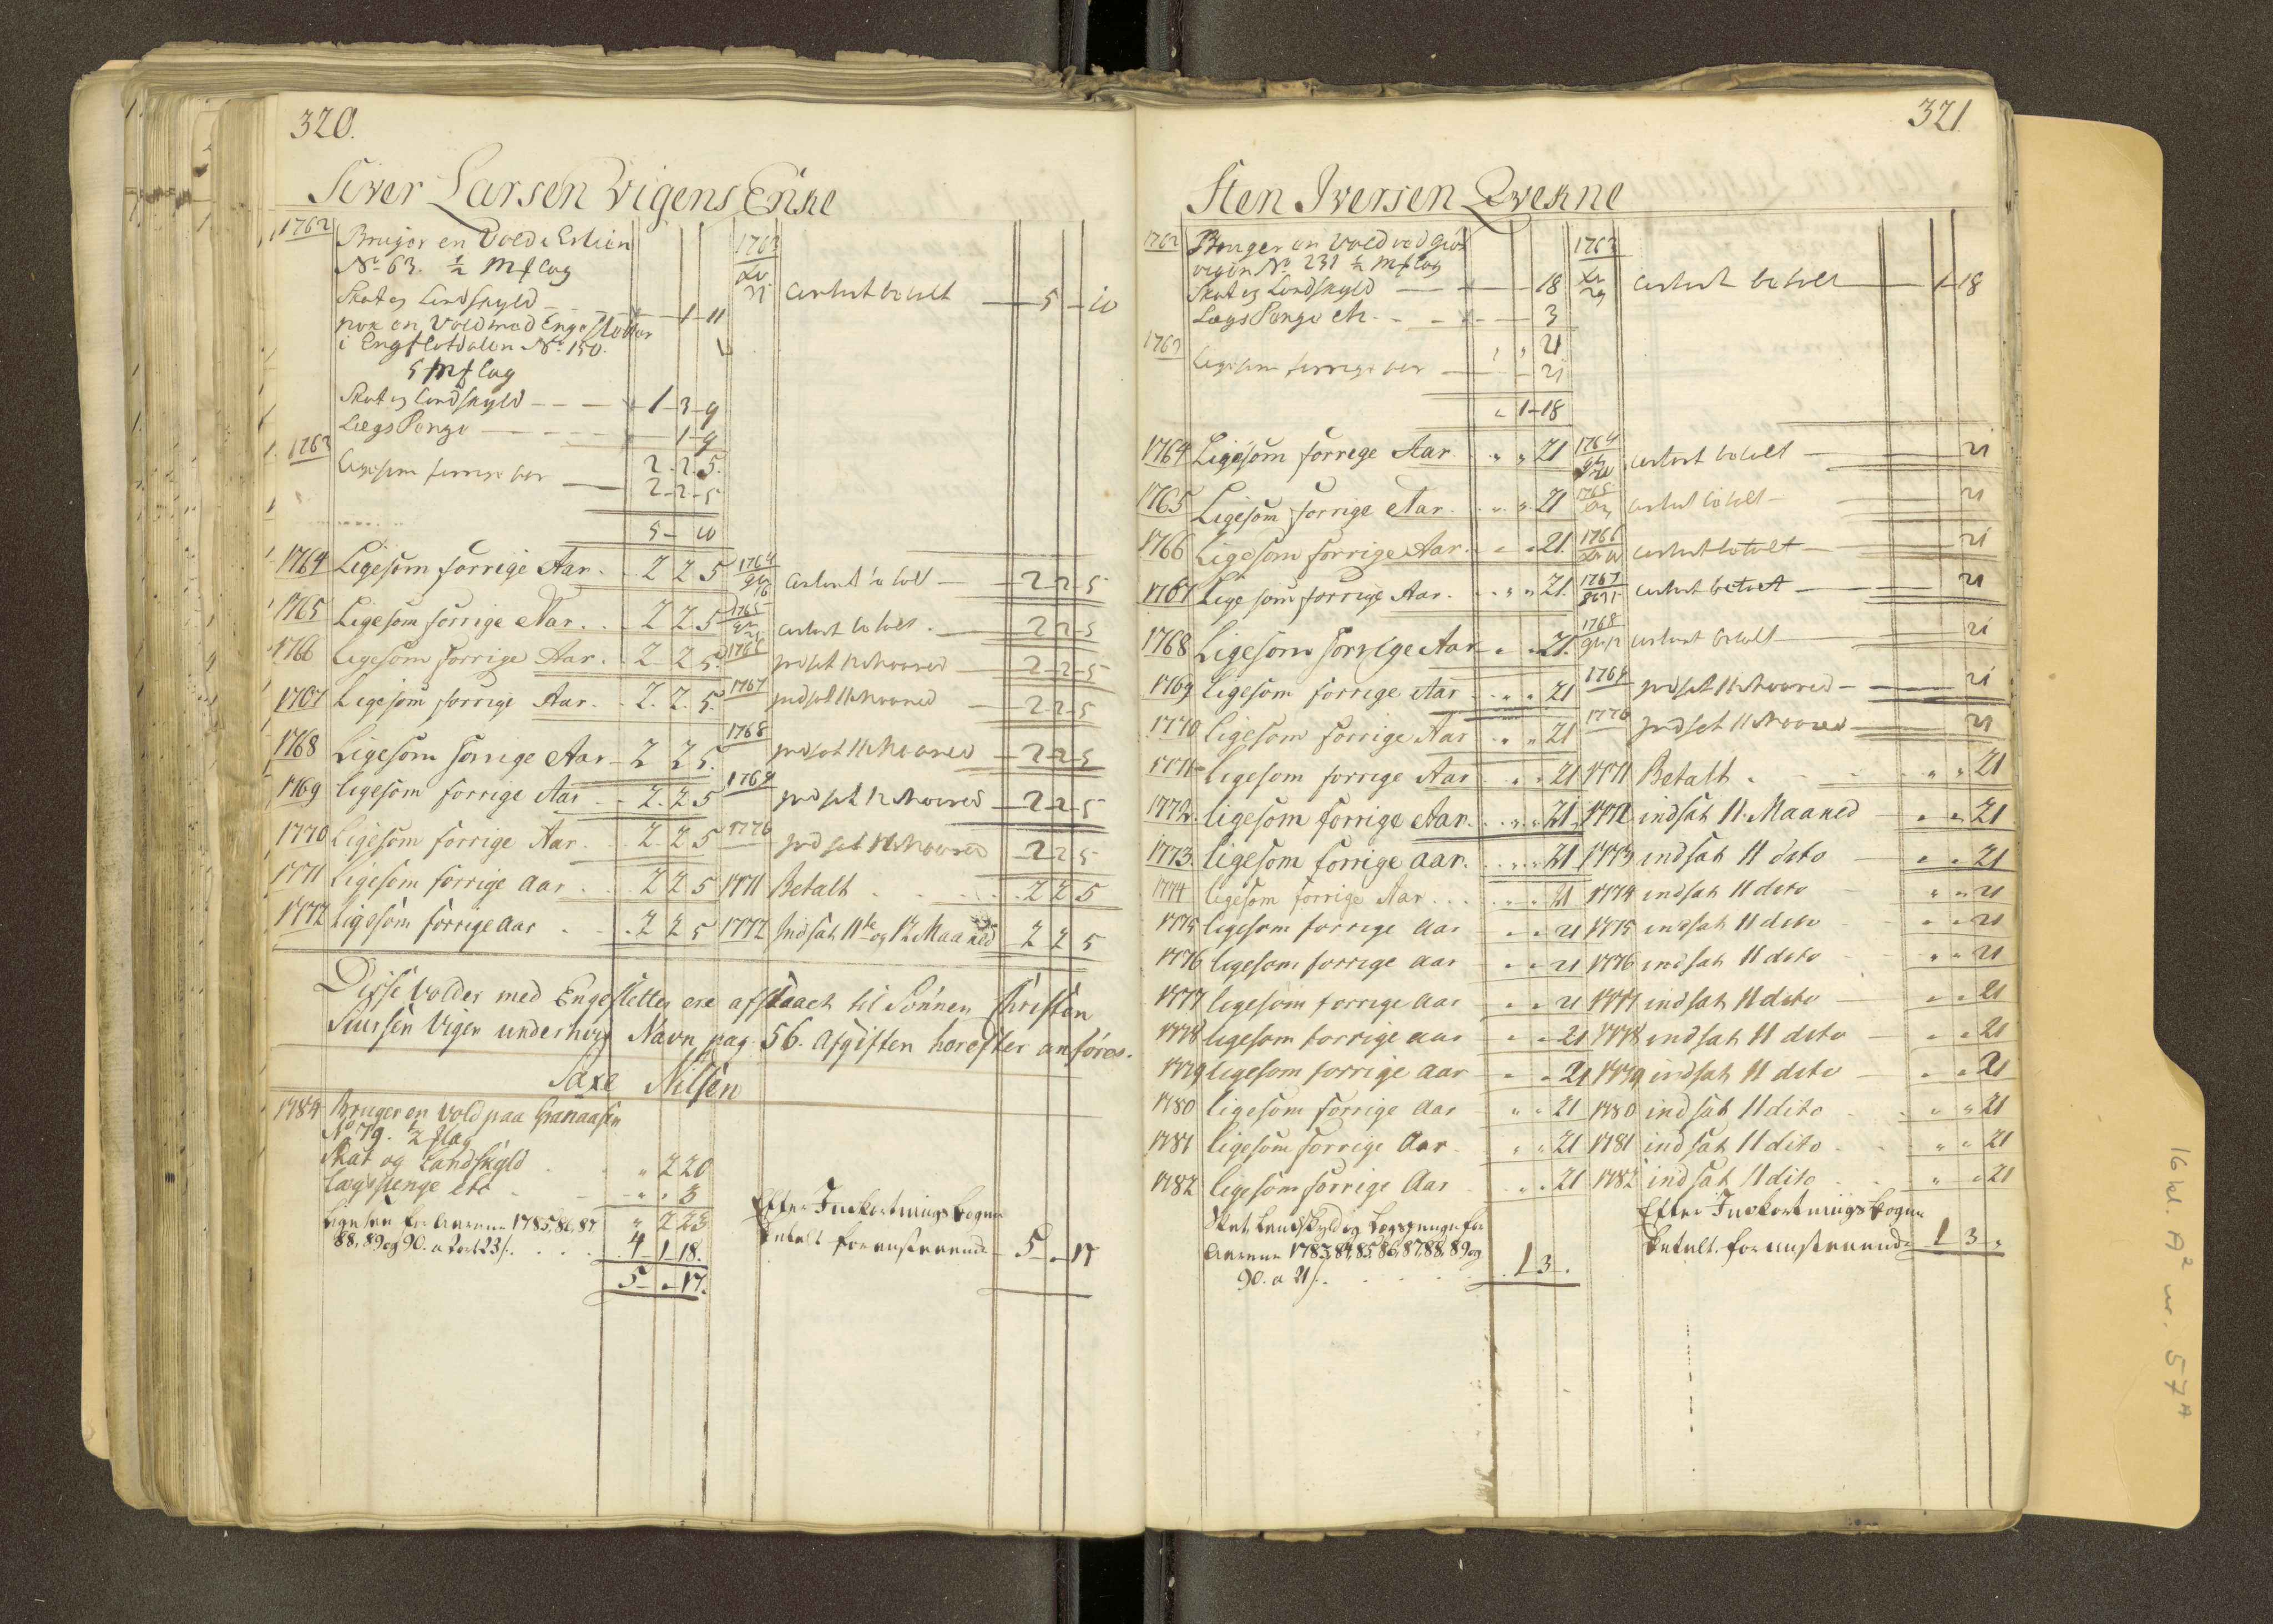 320.
Siver Larsen Vigens Enke
1762 Bruger en Vold i
No 63. ½ Mflag
Skat og Landskyld 1 - 11
nok en Vold med Enge Sletter
i Engsletdalen No 150.
5 Mflag
Skat og Landskyld 1 - 3 - 9
Lægs Penge 1 - 9
2 - 2 - 5.
1763 Ligesom forrige Aar 2 - 2 - 5
5 - 10
1763 betalt 5 - 10
1764 Ligesom forrige Aar. 2 2 5 1764 betalt 2 - 2 - 5
1765 Ligesom forrige Aar. 2 2 5 1765 betalt 2 - 2 - 5
1766 Ligesom forrige Aar. 2 2 5. 1766 indsat 12 Maaned 2 - 2 - 5
1767 Ligesom forrige Aar. 2. 2. 5. 1767 indsat 11 Maaned 2 - 2 - 5
1768 Ligesom forrige Aar 2 2 5. 1768 indsat 11 Maaned 2 - 2 - 5
1769 ligesom forrige Aar 2. 2 5 1769 indsat 12 Maaned 2 - 2 - 5
1770 Ligesom forrige Aar. 2 2 5 1770 indsat Maaned 2 2 5
1771 Ligesom forrige Aar. 2 2 5 1771 Betalt 2 2 5
1772 ligesom forrige Aar 2 2 5 1772 Indsat 11te og 12 Maaned 2 2 5
Disse Volder med Engesletten ere afstaaet til Sönnen Christen
Siursen Vigen under hvis Navn pag. 56. Afgiften herefter anföres.
Saxe Nilsen
1784 Bruger en Vold paa Granaasen
No 79. ½ flag
Skat og Landskyld „ 2 20
Lægspenge etc „ „ 3
Ligesom for Aarene 1785, 86, 87 „ 2 23
88, 89 og 90. a 23 s. 4 - 1 - 18.
5 - „ - 17.
Efter Indkortnings bogen
betalt foranstaaende 5 - „ 17
321.
Sten Iversen Qvekne
1762 Bruger en Vold ved
vigen No 231 ½ Mflag
Skat og Landskyld 18
Lægs Penge etc. 3
„ „ 21
1763 Ligesom forrige Aar 21
„ 1 - 18
1763 betalt 1 - 18
1764 Ligesom forrege Aar „ „ 21 1764 betalt 21
1765 Ligesom forrige Aar. „ „ 21 1765 betalt 21
1766 Ligesom forrige Aar. „ „ 21. 1766 betalt 21
1767 Lige som forrige Aar. „ „ 21. 1767 betalt 21
1768 Ligesom forrige Aar „ „ 21. 1768 betalt 21
1769 ligesom forrige Aar „ „ 21 1769 indsat 11 Maaned 21
1770 ligesom forrige Aar „ „ 21 1770 indsat 11 Maaned 21
1771 ligesom forrige Aar „ „ 21 1771 Betalt „ „ 21
1772. ligesom forrige Aar. „ „ 21. 1772 indsat 11. Maaned „ „ 21
1773. ligesom forrige aar. „ „ 21 1773 indsat 11 dito „ „ 21
1774 ligesom forrige Aar. „ „ 21 1774 indsat 11 dito „ „ 21
1775 ligesom forrige Aar „ „ 21 1775 indsat 11 dito „ „ 21
1776 ligesom forrige Aar „ „ 21 1776 indsat 11 dito „ „ 21
1777 ligesom forrige Aar „ „ 21 1777 indsat 11 dito „ „ 21
1778 ligesom forrige aar „ „ 21 1778 indsat 11 dito „ „ 21
1779 ligesom forrige Aar „ „ 21 1779 indsat 11 dito „ „ 21
1780 ligesom forrige Aar „ „ 21 1780 indsat 11 dito „ „ 21
1781 ligesom forrige Aar. „ „ 21 1781 indsat 11 dito „ „ 21
1782 ligesom forrige Aar „ „ 21 1782 indsat 11 dito „ „ 21
Skat, Landskyld og Lægspenge for
Aarene 1783, 84, 85, 86, 87, 88, 89 og
90. a 21 s. 1 3 .
Efter Indkortnings bogen
betalt foranstaaende 1 3 „
16 kl. A² nr. 57 A